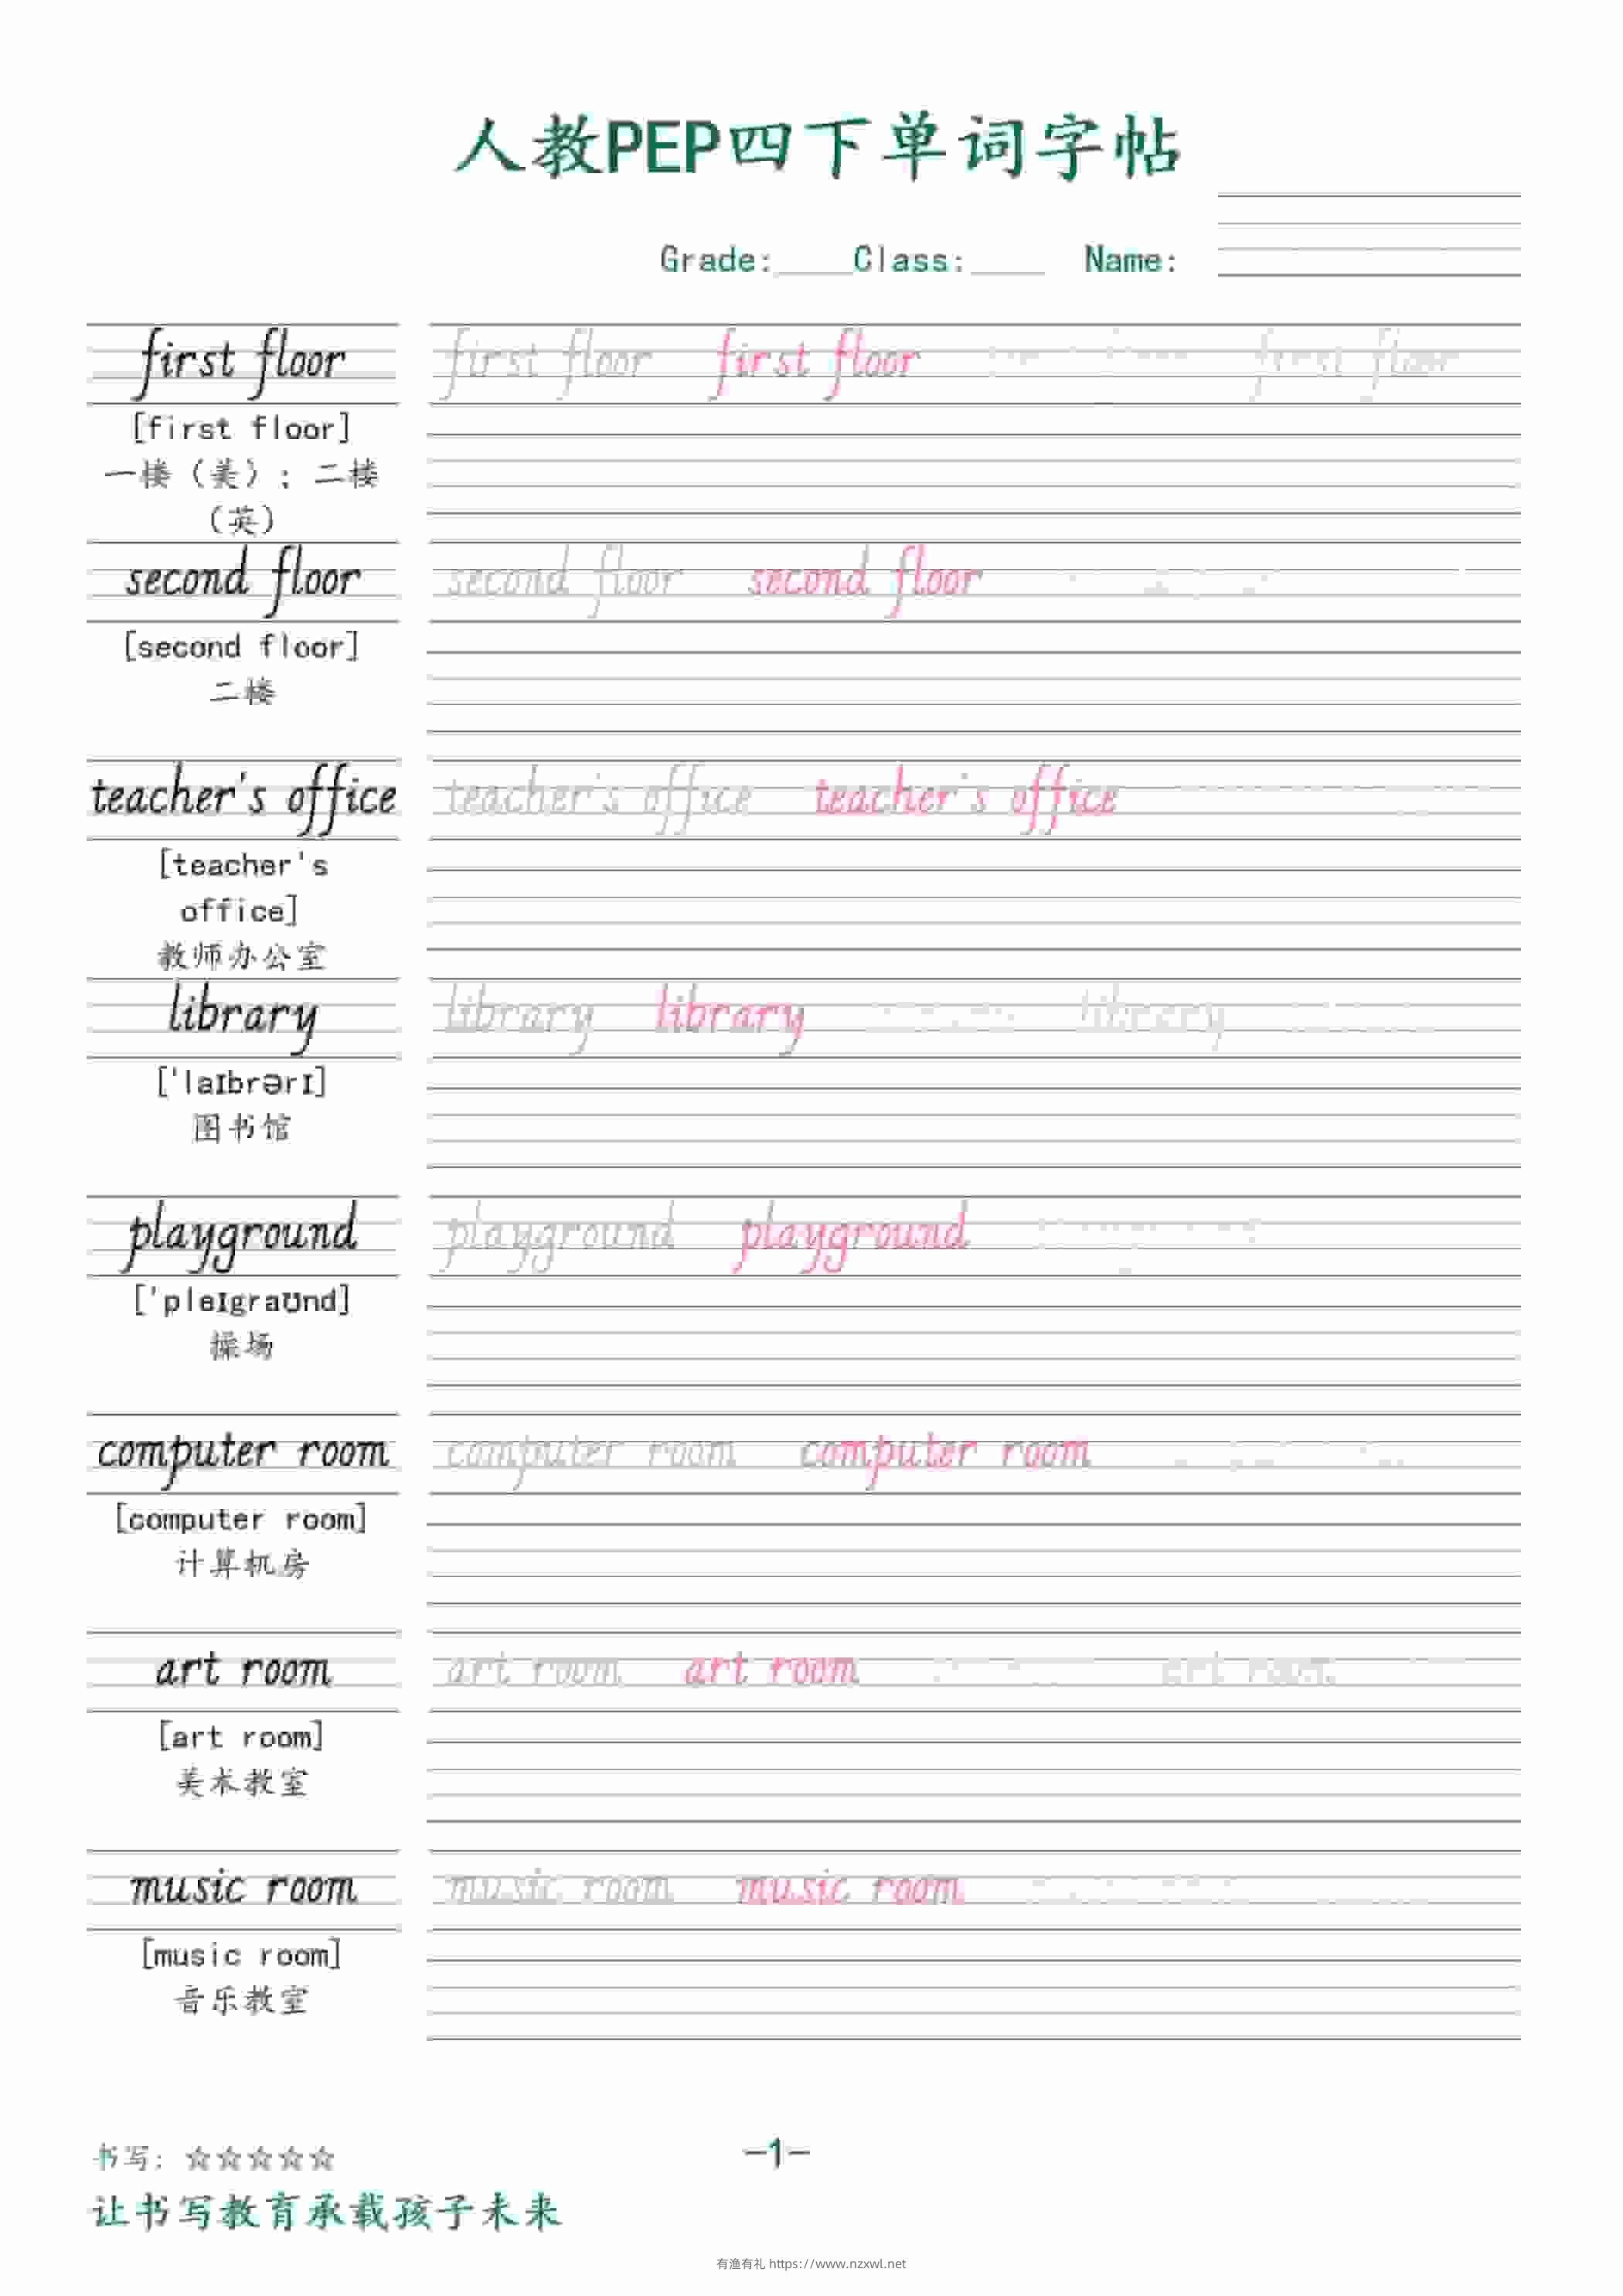 人教PEP四下单词字帖
Grade:____Class:____ Name:
first floor first floor first floor first floor
[first floor]
一楼（美）；二楼
（英）
second floor second floor second floor
[second floor]
二楼
teacher's office teacher's office teacher's office
[teacher's
office]
教师办公室
library library library library
['laɪbrərɪ]
图书馆
playground playground playground
['pleɪgraʊnd]
操场
computer room computer room computer room
[computer room]
计算机房
art room art room art room art room
[art room]
美术教室
music room music room music room
[music room]
音乐教室
书写：☆☆☆☆☆
-1-
让书写教育承载孩子未来
有渔有礼 https://www.nzxwl.net